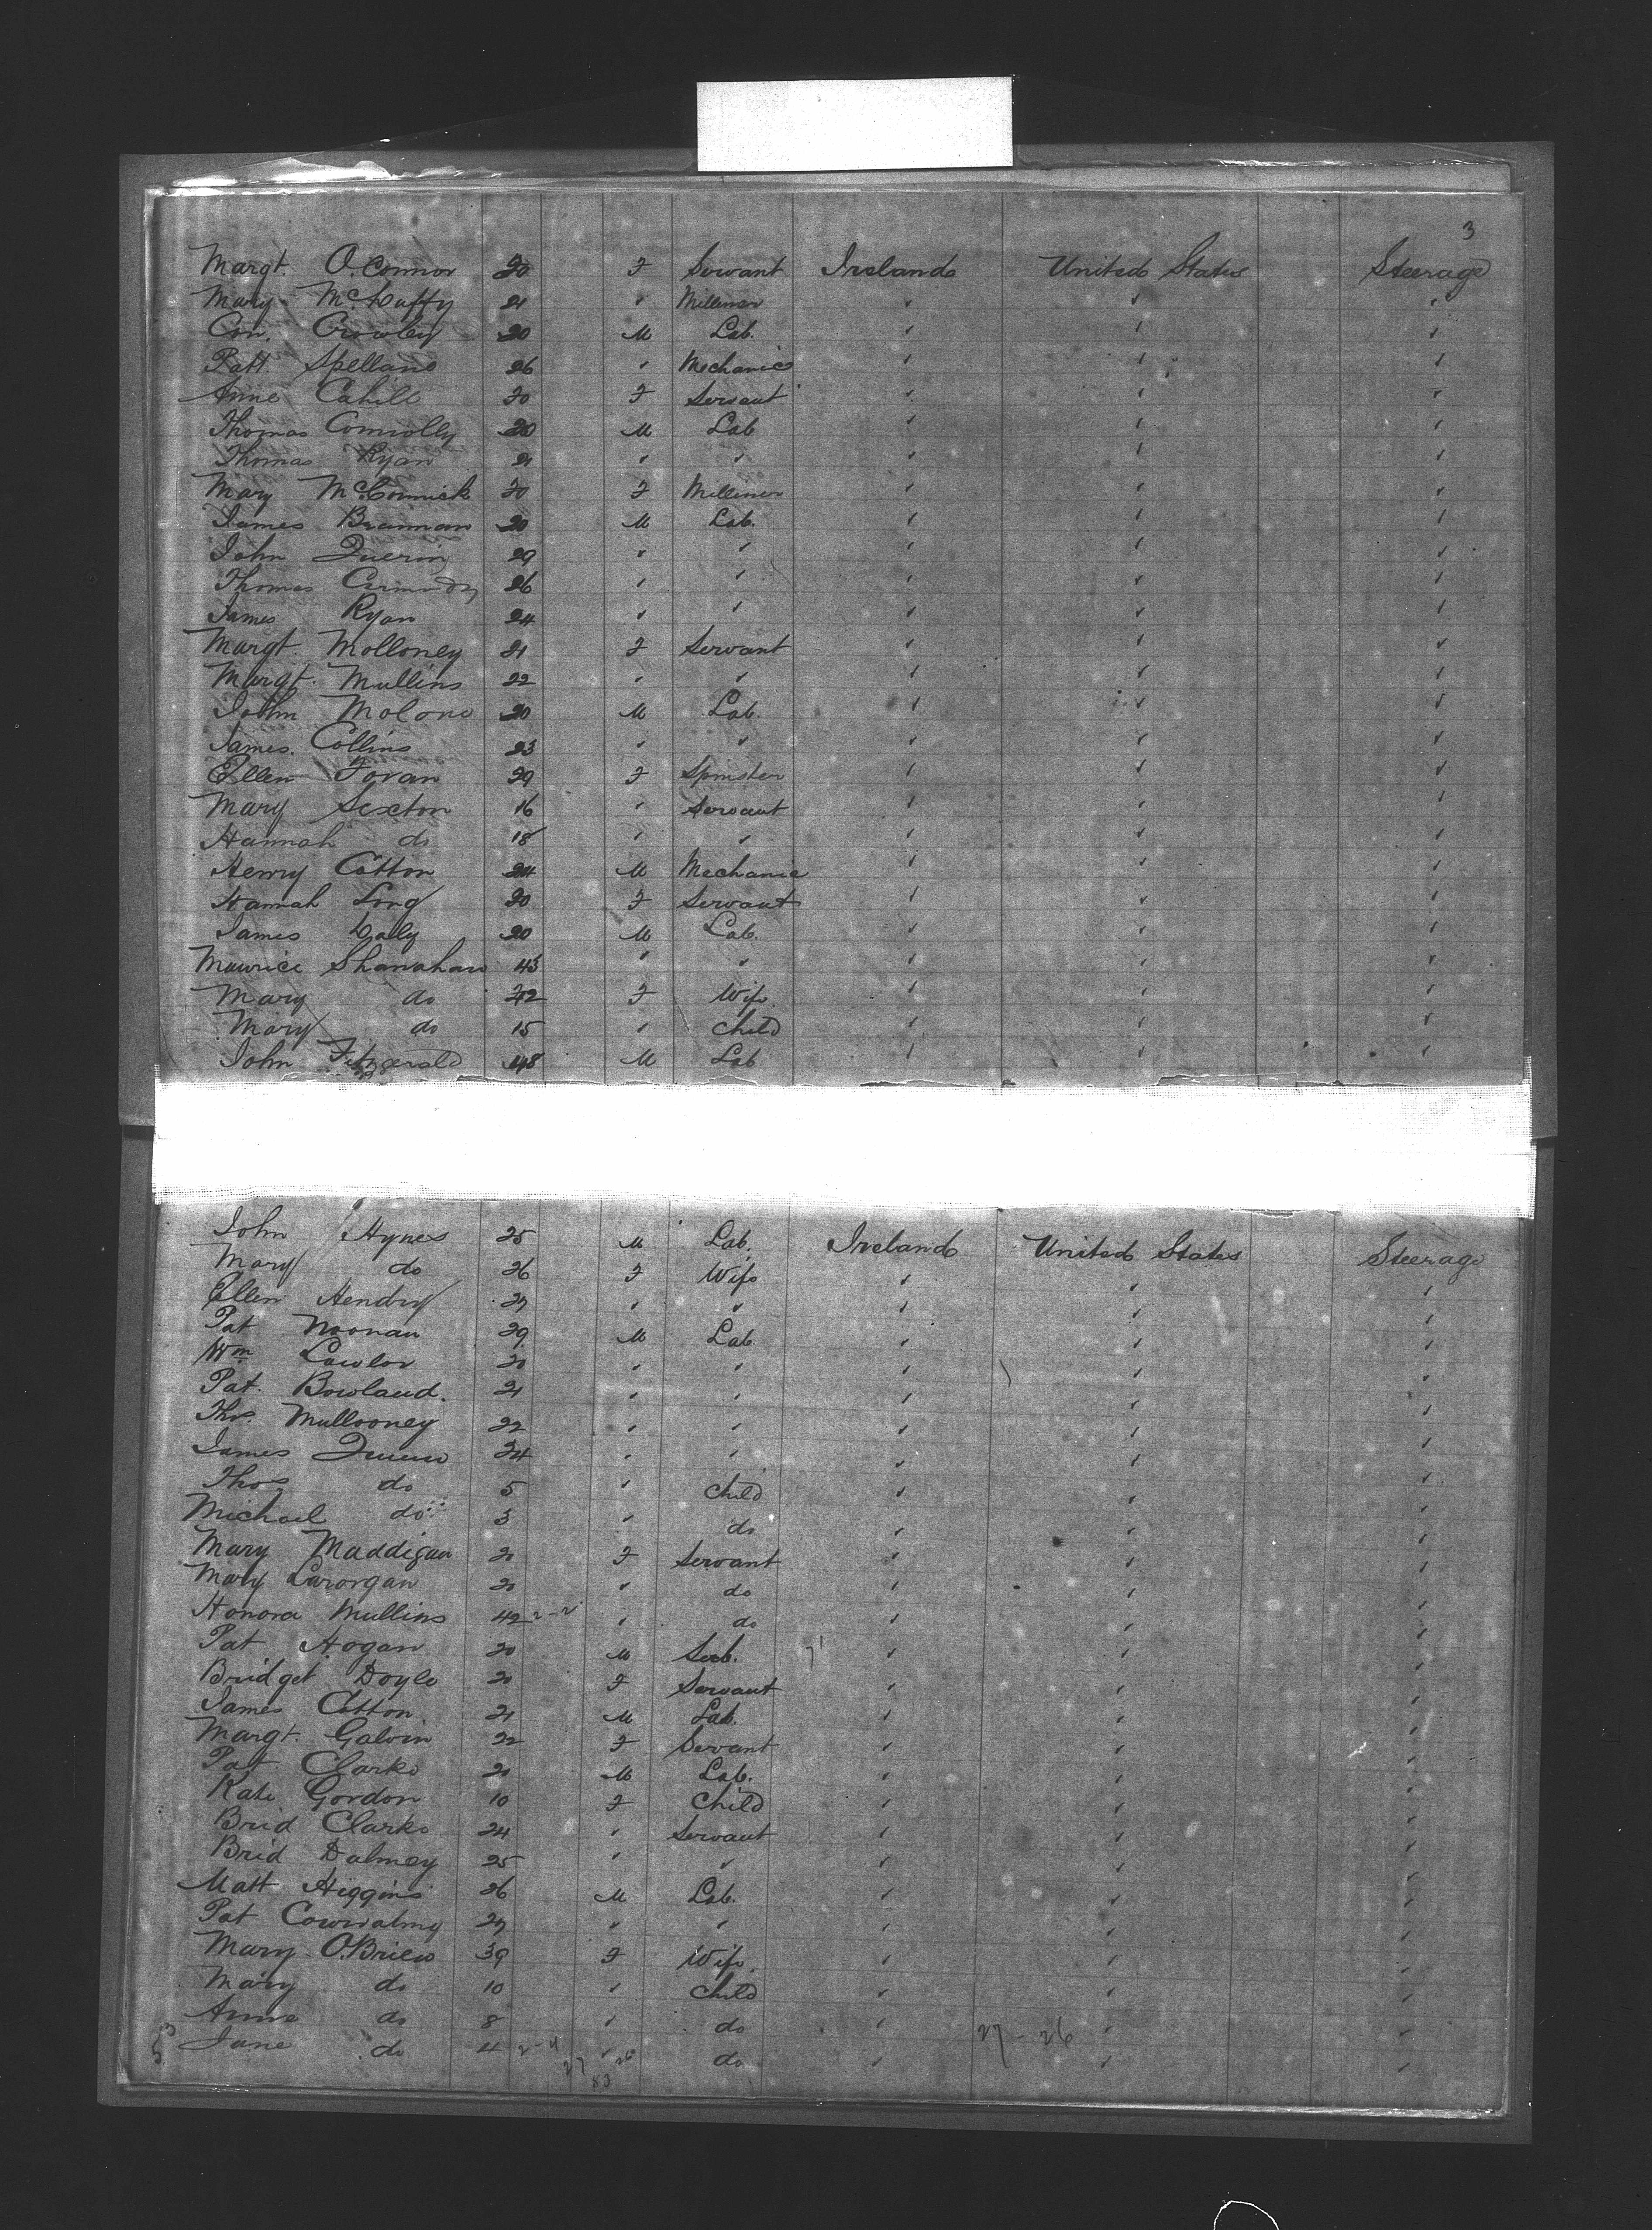 3
Margt. O.Connor 20 F Servant Ireland United States Steerage
Mary McDuffy 21 " Milliner " " "
Con. Crowley 20 M Lab. " " "
Patt. Spellane 26 " Mechanic " " "
Anne Cahill 20 F Servant " " "
Thomas Connolly 20 M Lab " " "
Thomas Ryan 21 " " " " "
Mary McCormick 20 F Milliner " " "
James Brannan 20 M Lab. " " "
John 29 " " " " "
Thomas 26 " " " " "
James Ryan 24 " " " " "
Margt. Molloney 21 F Servant " " "
Margt. Mullins 22 " " " " "
John Molone 20 M Lab. " " "
James. Collins 23 " " " " "
Ellen Foran 29 F Spinster " " "
Mary Sexton 16 " Servant " " "
Hannah do 18 " " " " "
Henry Cotton 24 M Mechanic " " "
Hannah Long 20 F Servant " " "
James Daly 20 M Lab. " " "
Maurice Shanahan 43 " " " " "
Mary do 42 F Wife " " "
Mary do 15 " Child " " "
John Fitzgerald 48 M Lab " " "
John Hynes 25 M Lab. Ireland United States Steerage
Mary do 26 F Wife " " "
Ellen Hendry 27 " " " " "
Pat Noonan 29 M Lab " " "
Wm Lawlor 20 " " " " "
Pat. Bowland. 21 " " " " "
Thos. Mullooney 22 " " " " "
James Quinn 24 " " " " "
Thos do 5 " Child " " "
Michael do 3 " do " " "
Mary Maddigan 20 F Servant " " "
Mary 20 " do " " "
Honora Mullins 42 2-2 " do " " "
Pat Hogan 20 M " " "
Bridget Doyle 20 F Servant " " "
James Cotton 21 M Lab. " " "
Margt. Galvin 22 F Servant " " "
Pat Clarke 21 M Lab. " " "
Kate Gordon 10 F Child " " "
Brid Clarke 24 " Servant " " "
Brid 25 " " " " "
Matt Higgins 26 M Lab. " " "
Pat 27 " " " " "
Mary O.Brien 39 F Wife. " " "
Mary do 10 " Child " " "
Anne do 8 " do " 27-26 " "
53 Jane do 4 2-4 " do " " "
27 26
83